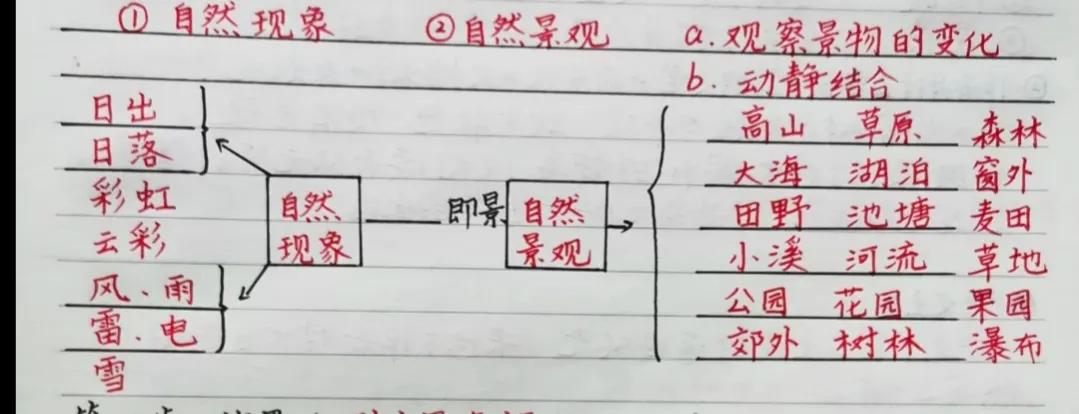 ① 自然现象 ②自然景观 a.观察景物的变化
b.动静结合
日出
日落
彩虹
云彩
风、雨
雷、电
雪
自然
现象
即景
自然
景观
高山 草原 森林
大海 湖泊 窗外
田野 池塘 麦田
小溪 河流 草地
公园 花园 果园
郊外 树林 瀑布